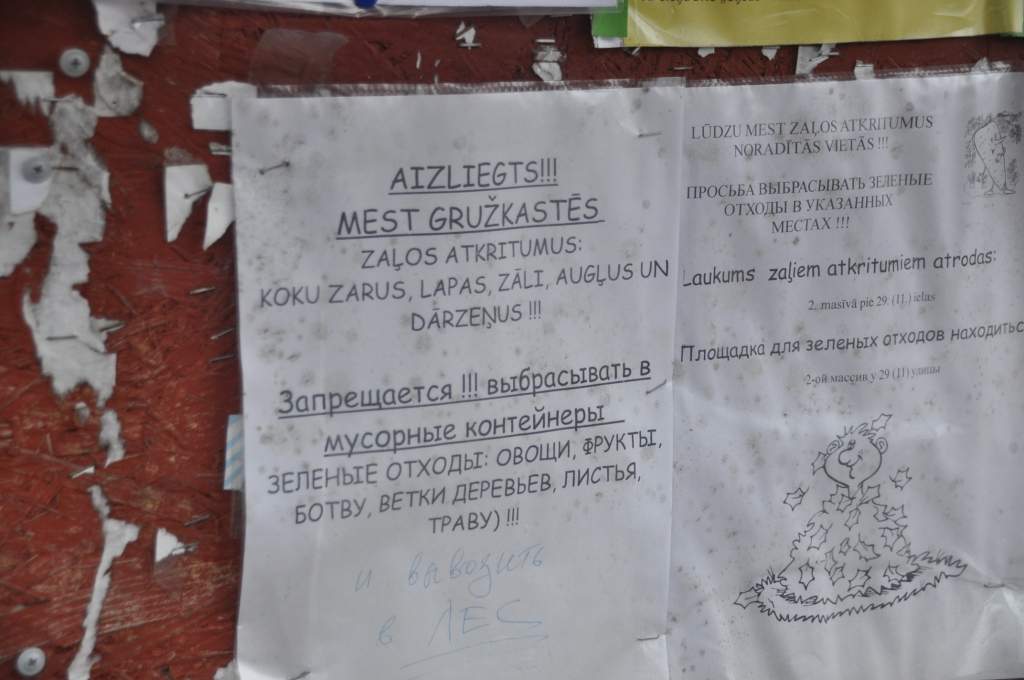 AIZLIEGTS!!!
MEST GRUŽKASTĒS
ZAĻOS ATKRITUMUS:
KOKU ZARUS, LAPAS, ZĀLI, AUGĻUS UN
DĀRZEŅUS !!!
Запрещается !!! выбрасывать в
мусорные контейнеры
ЗЕЛЕНЫЕ ОТХОДЫ: ОВОЩИ, ФРУКТЫ,
БОТВУ, ВЕТКИ ДЕРЕВЬЕВ, ЛИСТЬЯ,
ТРАВУ) !!!
и вывозить
в ЛЕС
LŪDZU MEST ZAĻOS ATKRITUMUS
NORADĪTĀS VIETĀS !!!
ПРОСЬБА ВЫБРАСЫВАТЬ ЗЕЛЕНЫЕ
ОТХОДЫ В УКАЗАННЫХ
МЕСТАХ !!!
Laukums zaļiem atkritumiem atrodas:
2. masīvā pie 29. (11.) ielas
Площадка для зеленых отходов находитьс
2-ой массив у 29 (11) улицы